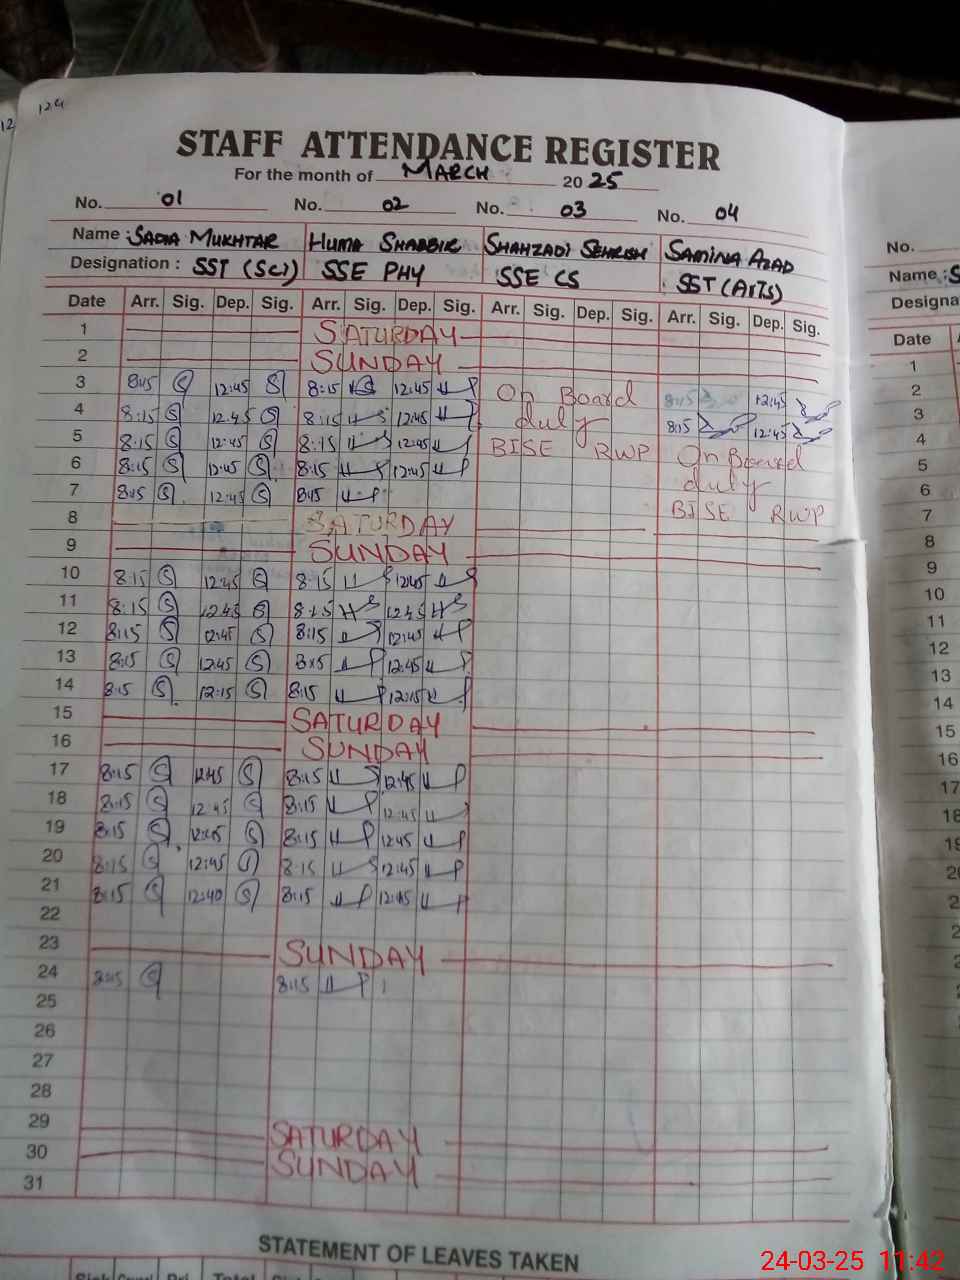 124
12
STAFF ATTENDANCE REGISTER
For the month of MARCH 2025
No. 01 No. 02 No. 03 No. 04
No.
Name : SADIA MUKHTAR HUMA SHABBIR SHAHZADI SEHRISH SAMINA AZAD
Name : S
Designation : SST (Sci) SSE PHY SSE CS SST (Arts)
Designa
Date Arr. Sig. Dep. Sig. Arr. Sig. Dep. Sig. Arr. Sig. Dep. Sig. Arr. Sig. Dep. Sig.
Date
1 SATURDAY
2 SUNDAY
3 8:15 S 12:45 S 8:15 12:45 On Board 8:15 12:45
4 8:15 S 12:45 S 8:15 12:45 duty 8:15 12:45
5 8:15 S 12:45 S 8:15 12:45 BISE RWP On Board
6 8:15 S 12:45 S 8:15 12:45 duty
7 8:15 S 12:45 S 8:15 BISE RWP
8 SATURDAY
9 SUNDAY
10 8:15 S 12:45 S 8:15 12:45
11 8:15 S 12:45 S 8:15 HS 12:45 HS
12 8:15 S 12:45 S 8:15 12:45
13 8:15 S 12:45 S 8:15 12:45
14 8:15 S 12:15 S 8:15 12:15
15 SATURDAY
16 SUNDAY
17 8:15 S 12:45 S 8:15 12:45
18 8:15 S 12:45 S 8:15 12:45
19 8:15 S 12:45 S 8:15 12:45
20 8:15 S 12:45 S 8:15 12:45
21 8:15 S 12:40 S 8:15 12:45
22
23 SUNDAY
24 8:15 S 8:15
25
26
27
28
29 SATURDAY
30 SUNDAY
31
1
2
3
4
5
6
7
8
9
10
11
12
13
14
15
16
17
18
19
STATEMENT OF LEAVES TAKEN
Total
24-03-25 11:42